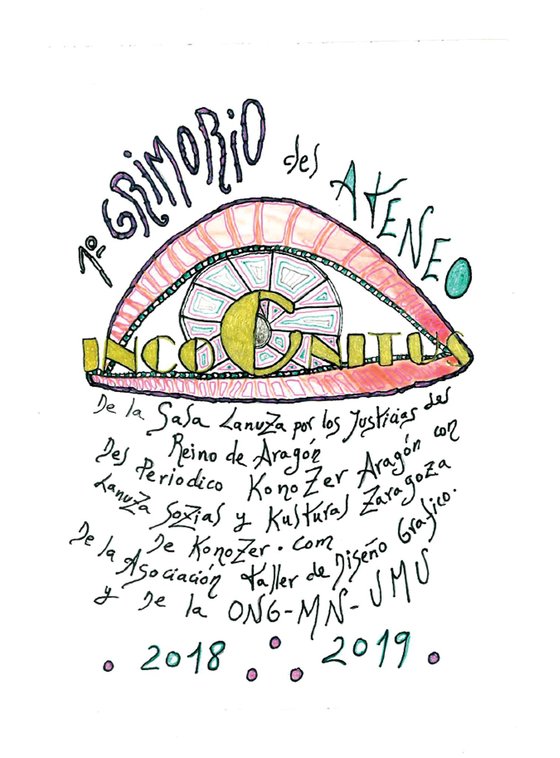 1º GRIMORIO des ATENEO
INCOGNITUS
De la Sasa Lanuza por los Justicias des
Reino de Aragón
Des Periodico KonoZer Aragón con
Lanuza Sozias y Kusturas Zaragoza
De KonoZer.com
De la Asociación taller de Diseño Grasico.
y De la ONG-MN-UMU
2018 2019